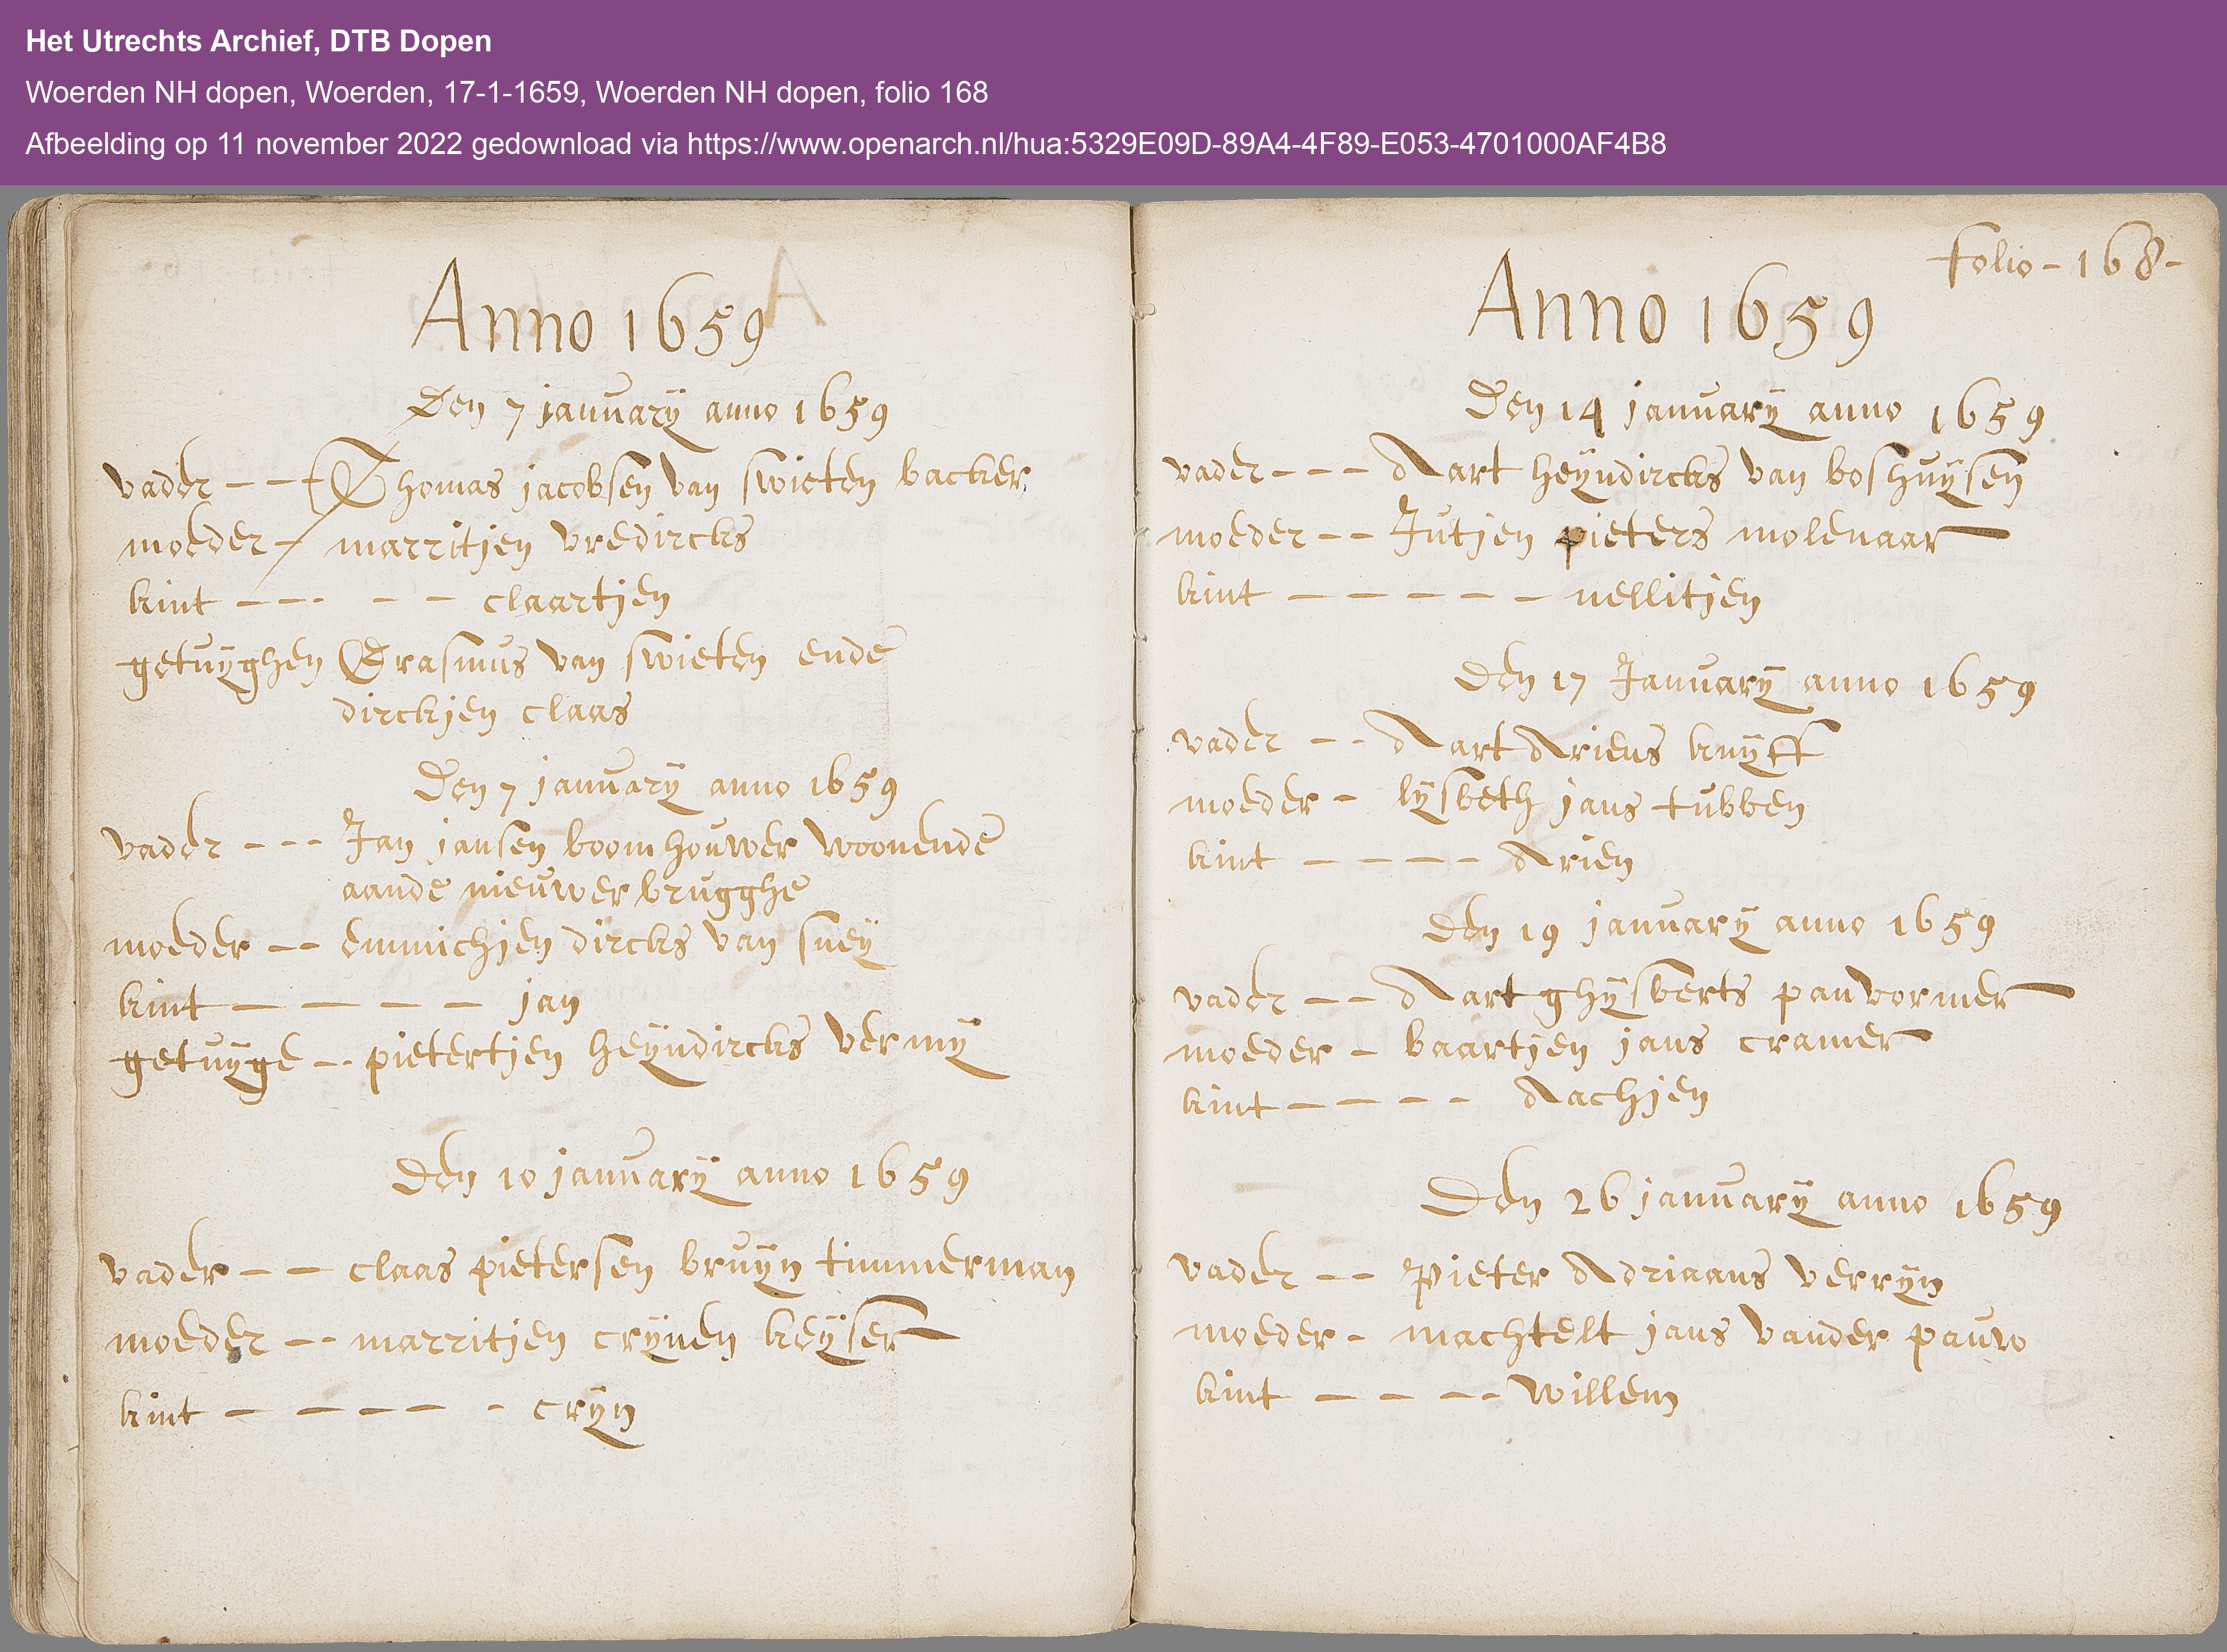 Het Utrechts Archief, DTB Dopen
Woerden NH dopen, Woerden, 17-1-1659, Woerden NH dopen, folio 168
Afbeelding op 11 november 2022 gedownload via https://www.openarch.nl/hua:5329E09D-89A4-4F89-E053-4701000AF4B8
Anno 1659
Den 7 january anno 1659
vader - - - Thomas jacobsen van swieten backer
moeder - marritjen vredircks
kint - - - - - claartjen
getuyghen Erasmus van swieten ende
dirckjen claas
Den 7 january anno 1659
vader - - - Jan jansen boomhouwer woonende
aande nieuwerbrugghe
moeder - - emmichjen dircks van sney
kint - - - - - jan
getuyge - - pietertjen heyndircks vermy
Den 10 january anno 1659
vader - - claas pietersen bruyn timmerman
moeder - - marritjen crynen keyser
kint - - - - - cryn
folio - 168 -
Anno 1659
Den 14 january anno 1659
vader - - - Aart heyndircks van boshuysen
moeder - - Jutjen pieters molenaar
kint - - - - - - nellitjen
Den 17 January anno 1659
vader - - Aart Ariens knyff
moeder - lysbeth jans tubben
kint - - - - - Arien
Den 19 january anno 1659
vader - - Aart ghysberts panvormer
moeder - baartjen jans cramer
kint - - - - - Aachjen
Den 26 january anno 1659
vader - - Pieter Adriaans verryn
moeder - machtelt jans vander pauw
kint - - - - willem